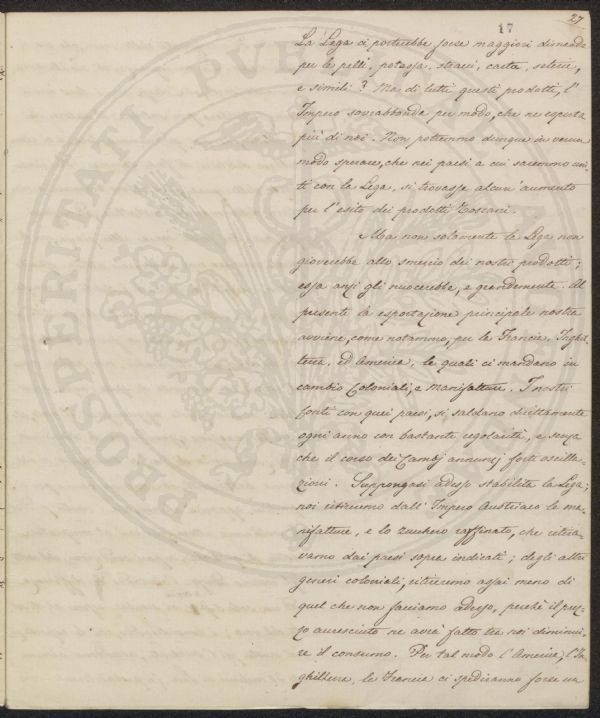 27
17
La Lega ci porterebbe forse maggiori dimande
per le pelli, potassa, stracci, carta, seterie,
e simili? Ma di tutti questi prodotti, l'
Impero sovrabbonda per modo, che ne esporta
più di noi. Non potremmo dunque in verun
modo sperare, che nei paesi a cui saremmo uni-
ti con la Lega, si trovasse alcun' aumento
per l'esito dei prodotti Toscani.
Ma non solamente la Lega non
gioverebbe allo smercio dei nostri prodotti;
essa anzi gli nuocerebbe, e grandemente. Al
presente la esportazione principale nostra
avviene, come notammo, per la Francia, Inghil-
terra, ed America, le quali ci mandano in
cambio Coloniali, e Manifatture. I nostri
conti con quei paesi, si saldano direttamente
ogni anno con bastante regolarità, e senza
che il corso dei Cambj annunzj forti oscilla-
zioni. Suppongasi adesso stabilita la Lega;
noi ritiremo dall' Impero Austriaco le ma-
nifatture, e lo zucchero raffinato, che ritira-
vamo dai paesi sopra indicati; degli altri
generi coloniali, ritiremo assai meno di
quel che non facciamo adesso, perchè il prez-
zo accresciuto ne avrà fatto tra noi diminui-
re il consumo. Per tal modo l'America, l'In-
ghilterra, la Francia ci spediranno forse un
PROSPERITATI PUBLICAE